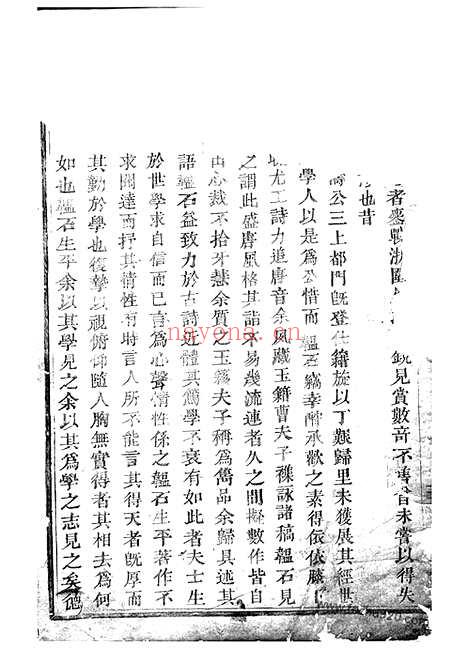 者麥戰浙闈
銳見賞數奇不售官未嘗以得失
也昔
公三上都門旣登仕籍旋以丁艱歸里未獲展其經世
學人以是爲公惜而韞石竊幸酧承歡之素得依依膝
尤工詩力追唐音余夙藏玉籍曹夫子襍詠諸稿韞石見
之謂此盛唐風格其詣未易幾流連者久之間擬數作皆自
出心裁不拾牙慧余質之玉籍夫子稱爲雋品余歸具述其
語韞石益致力於古詩近體其篤學不衰有如此者夫士生
於世學求自信而已言爲心聲情性係之韞石生平著作不
求聞達而抒其情性有時言人所不能言其得天者旣厚而
其勤於學也復摯以視俯仰隨人胸無實得者其相去爲何
如也韞石生平余以其學見之余以其爲學之志見之矣
nayona.cn